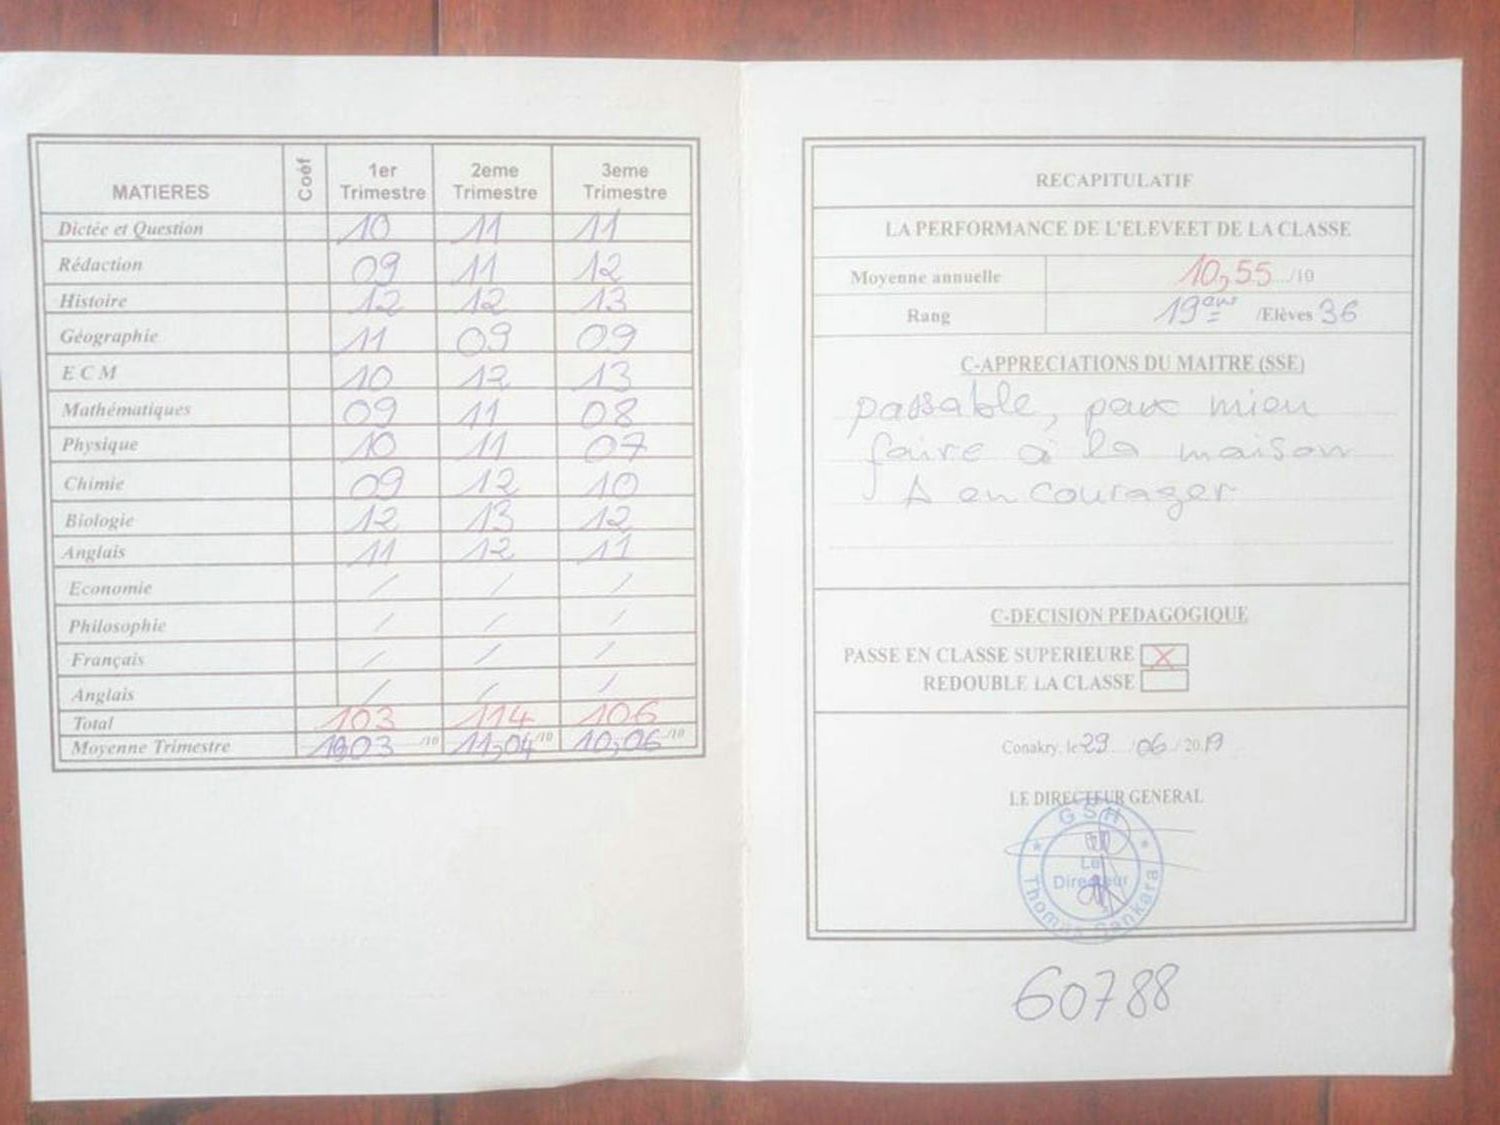 MATIERES Coéf 1er Trimestre 2eme Trimestre 3eme Trimestre
Dictée et Question 10 11 11
Rédaction 09 11 12
Histoire 12 12 13
Géographie 11 09 09
E C M 10 12 13
Mathématiques 09 11 08
Physique 10 11 07
Chimie 09 12 10
Biologie 12 13 12
Anglais 11 12 11
Economie / / /
Philosophie / / /
Français / / /
Anglais / / /
Total 103 114 106
Moyenne Trimestre /10 11,04 /10 10,06 /10
RECAPITULATIF
LA PERFORMANCE DE L'ELEVEET DE LA CLASSE
Moyenne annuelle 10,55 /10
Rang 19ème /Elèves 36
C-APPRECIATIONS DU MAITRE (SSE)
passable, peut mieu
faire à la maison
A encourager
C-DECISION PEDAGOGIQUE
PASSE EN CLASSE SUPERIEURE X
REDOUBLE LA CLASSE
Conakry, le 29 /06 / 2019
LE DIRECTEUR GENERAL
GSH
Le
Directeur
Thomas Sankara
60788